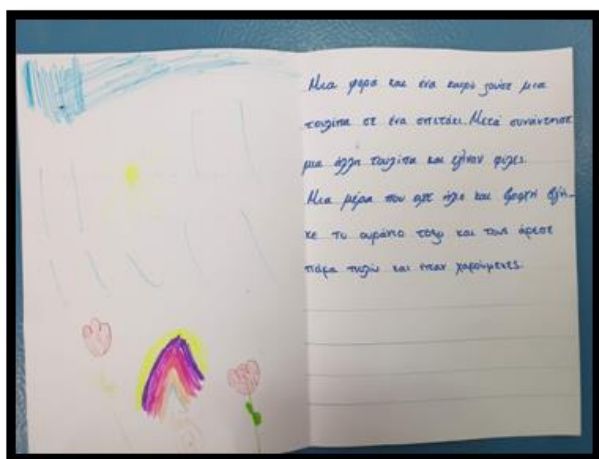 Μια φορα και ένα καιρό ζούσε μια
τουλίπα σε ένα σπιτάκι. Μετά συνάντησε
μια άλλη τουλίπα και έγιναν φίλες.
Μια μέρα που είχε ήλιο και βροχή βγή-
κε το ουράνιο τόξο και τους άρεσε
πάρα πολύ και ήταν χαρούμενες.